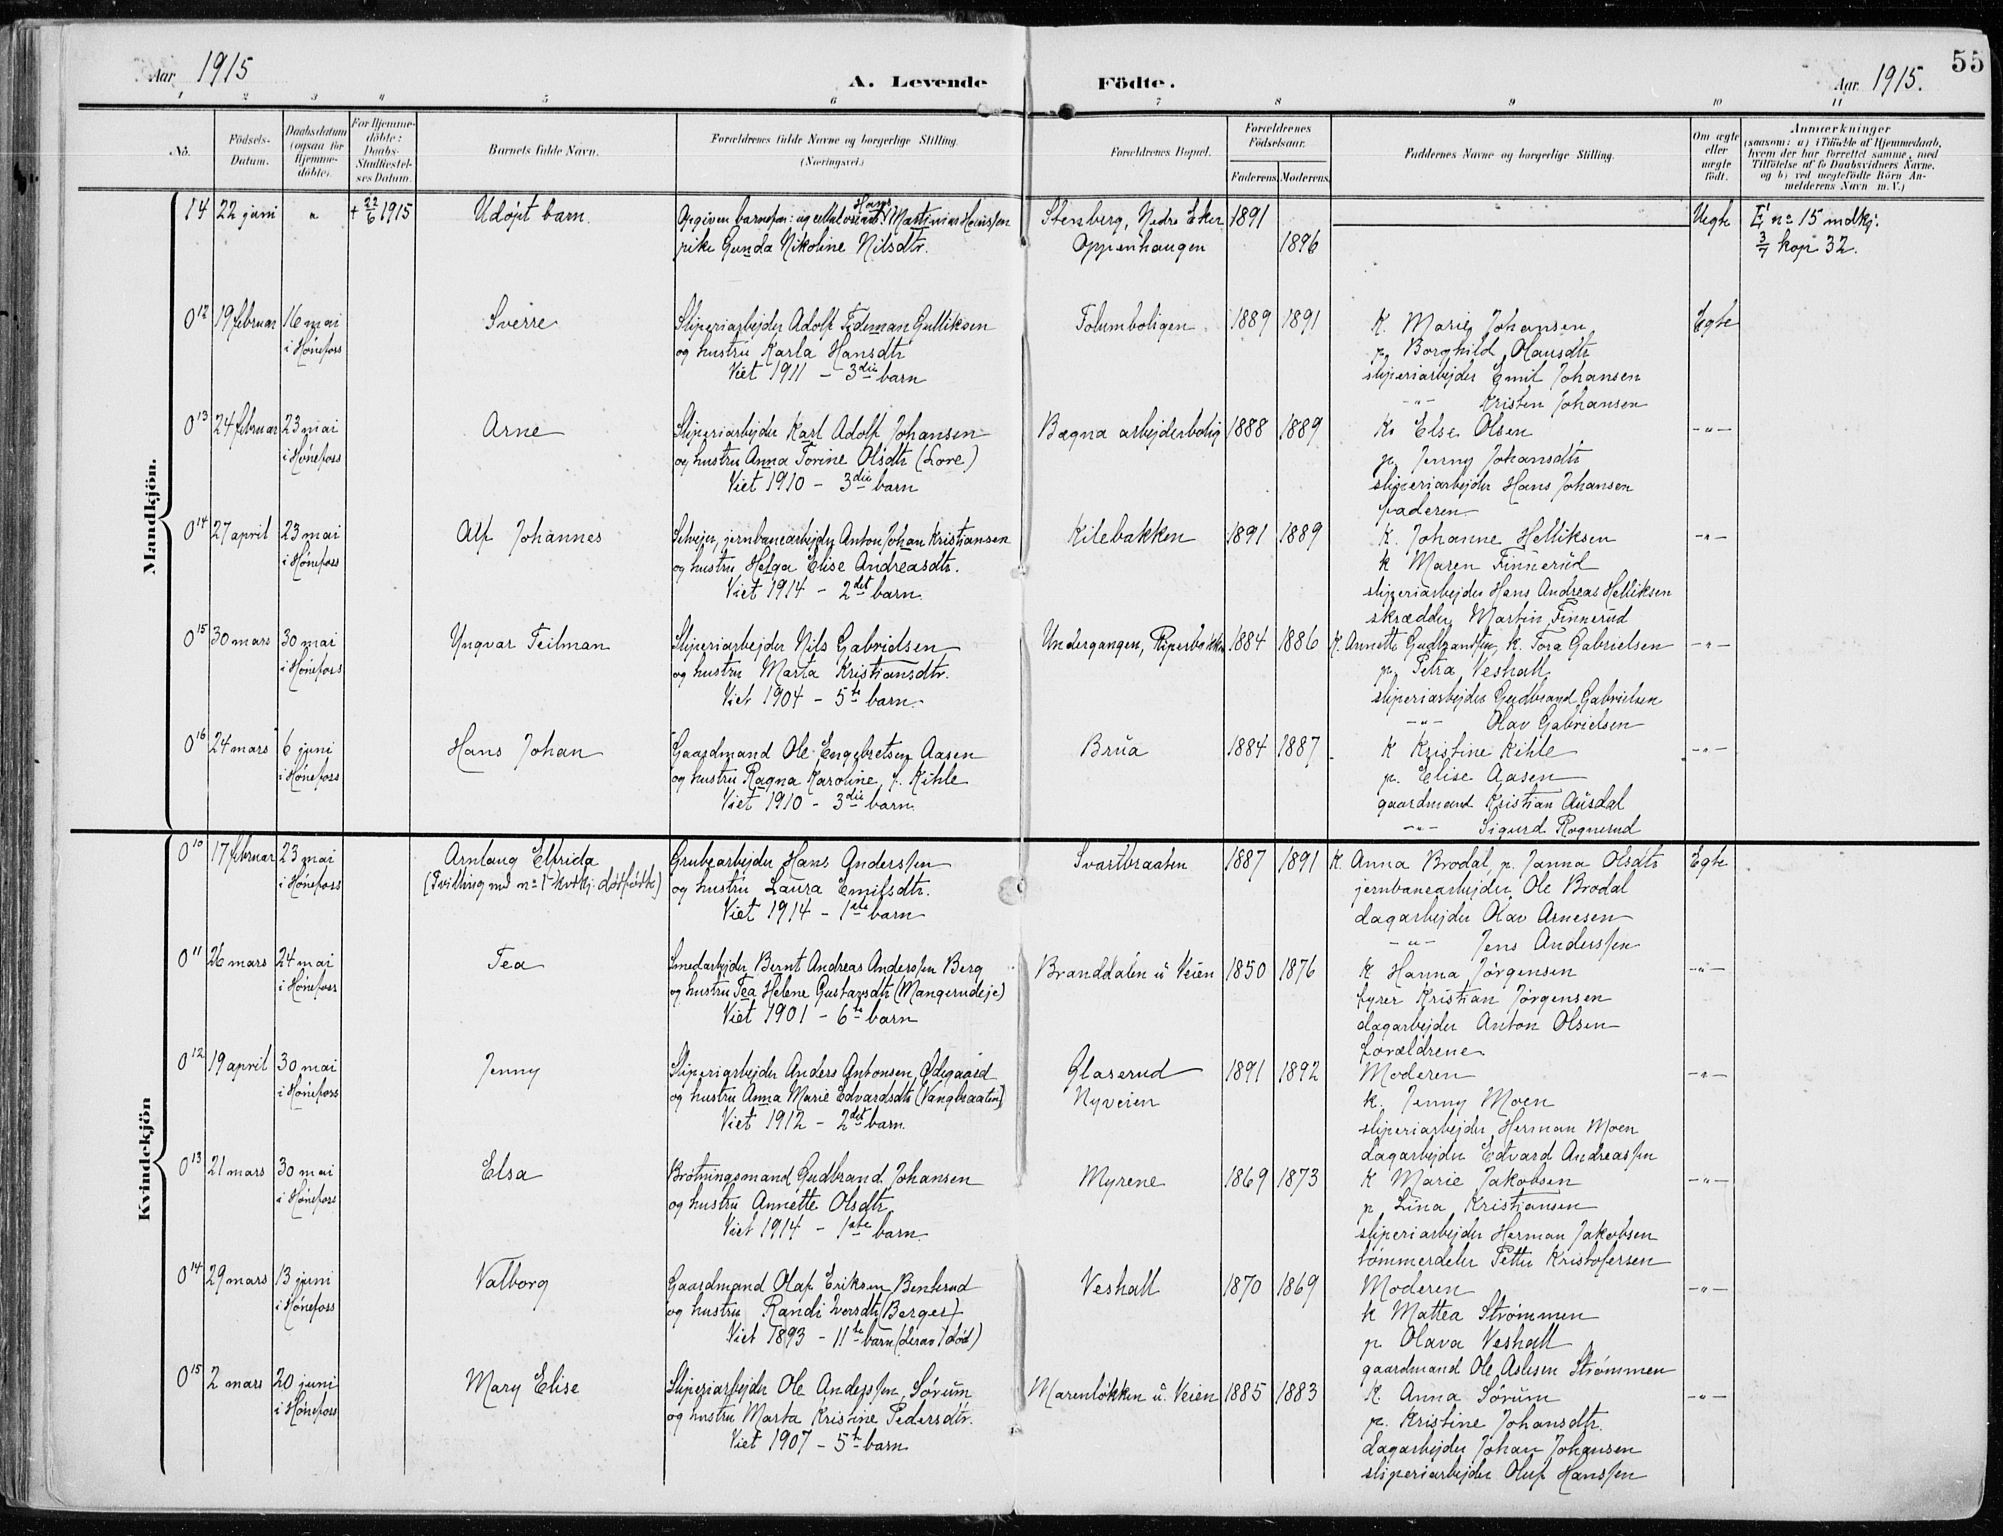 55
Aar 1915
A. Levende Födte.
Aar 1915.
1 2 3 4 5 6 7 8 9 10 11
No.
Födsels-
Datum.
Daabsdatum
(ogsaa for
Hjemme-
døbte).
For Hjemme-
döbte:
Daabs-
Stadfæstel-
ses Datum.
Barnets fulde Navn.
Forældrenes fulde Navne og borgerlige Stilling.
(Næringsvei.)
Forældrenes Bopæl.
Forældrenes
Födselsaar.
Faderens. Moderens.
Faddernes Navne og borgerlige Stilling.
Om ægte
eller
uægte
født.
Anmærkninger
(saasom: a) i Tilfælde af Hjemmedaab,
hvem der har forrettet samme, med
Tilföielse af to Daabsvidners Navne,
og b) ved uegtefödte Börn An-
melderens Navn m. V.)
Mandkjön.
14 22 juni " + 22/6 1915 Udøpt barn.
Opgiven barnefar: Hans Martinius Hansen
pike Gunda Nikoline Nilsdtr.
Stenberg, Nedre Eker 1891
Oppenhaugen 1896
Uegte
no 15 mdkj.
3/7 kop 32.
0 12 19 februar 16 mai
i Hönefoss
Sverre
Sliperiarbejder Adolf Tideman Gulliksen
og hustru Karla Hansdtr
Viet 1911 - 3die barn
Folumboligen 1889 1891
K. Marie Johansen
p. Borghild Hansdtr
sliperiarbejder Emil Johansen
-"- Kristen Johansen
Egte
0 13 24 februar 23 mai
i Hönefoss
Arne
Sliperiarbejder Karl Adolf Johansen
og hustru Anna Torine Olsdtr (Lore)
Viet 1910 - 3die barn
Bægna arbejderbolig 1888 1889
K. Else Olsen
p. Jenny Johansdtr
sliperiarbejder Hans Johansen
faderen
-"-
0 14 27 april 23 mai
i Hönefoss
Alf Johannes
Selveier, jernbanearbejder Anton Johan Kristiansen
og hustru Helga Elise Andreasdtr.
Viet 1914 - 2det barn
Kilebakken 1891 1889
K. Johanne Helliksen
k Maren Finnerud
sliperiarbejder Hans Andreas Helliksen
skrædder Martin Finnerud
-"-
0 15 30 mars 30 mai
i Hönefoss
Yngvar Teilman
Sliperiarbejder Nils Gabrielsen
og hustru Marta Kristiansdtr.
Viet 1904 - 5te barn
Undergangen, Piperbakken 1884 1886
K. Annette Gudbrandsen, k. Tora Gabrielsen
p. Petra Veshall
sliperiarbejder Gudbrand Gabrielsen
-"- Olav Gabrielsen
-"-
0 16 24 mars 6 juni
i Hönefoss
Hans Johan
Gaardmand Ole Engebretsen Aasen
og hustru Ragna Karoline f. Kihle
Viet 1910 - 3die barn
Brua 1884 1887
K Kristine Kihle
p. Elise Aasen
gaardmand Kristian Ausdal
-"- Sigurd Rognerud
-"-
Kvindekjön
0 10 17 februar 23 mai
i Hönefoss
Arnlaug Elfrida
(Tvilling med no 1 kvkj. dødfødte)
Grubearbejder Hans Andersen
og hustru Laura Emilsdtr.
Viet 1914 - 1ste barn
Svartbraaten 1887 1891
K Anna Brodal, p. Janna Olsdtr
jernbanearbejder Ole Brodal
dagarbejder Olav Arnesen
-"- Jens Andersen
Egte
0 11 26 mars 24 mai
i Hönefoss
Tea
Smedarbejder Bernt Andreas Andersen Berg
og hustru Tea Helene Gustavsdtr (Mangerudeje)
Viet 1901 - 6te barn
Branddalen u Veien 1850 1876
K Hanna Jørgensen
fyrer Kristian Jørgensen
dagarbejder Anton Olsen
forældrene
-"-
0 12 19 april 30 mai
i Hönefoss
Jenny
Sliperiarbejder Anders Antonsen Ødegaard
og hustru Anna Marie Edvardsdtr (Vangbraaten)
Viet 1912 - 2det barn
Glaserud 1891 1892
Nyveien
Moderen
k. Jenny Moen
sliperiarbejder Herman Moen
dagarbejder Edvard Andreassen
-"-
0 13 21 mars 30 mai
i Hönefoss
Elsa
Brotningsmand Gudbrand Johansen
og hustru Annette Olsdtr
Viet 1914 - 1ste barn
Myrene 1869 1873
K Marie Jakobsen
p. Lina Kristiansen
sliperiarbejder Herman Jakobsen
tømmerdeler Petter Kristofersen
-"-
0 14 29 mars 13 juni
i Hönefoss
Valborg
Gaardmand Olaf Eriksen Benterud
og hustru Randi Iversdtr (Berger)
Viet 1893 - 11te barn (derav 1 død)
Veshall 1870 1869
Moderen
k Mattea Strømmen
p Olava Veshall
gaardmand Ole Aslesen Strømmen
-"-
0 15 2 mars 20 juni
i Hönefoss
Mary Elise
Sliperiarbejder Ole Andersen Sørum
og hustru Marta Kristine Pedersdtr.
Viet 1907 - 5te barn
Marenløkken u. Veien 1885 1883
K. Anna Sørum
p. Kristine Johansdtr.
dagarbejder Johan Johansen
sliperiarbejder Oluf Hanssen
-"-